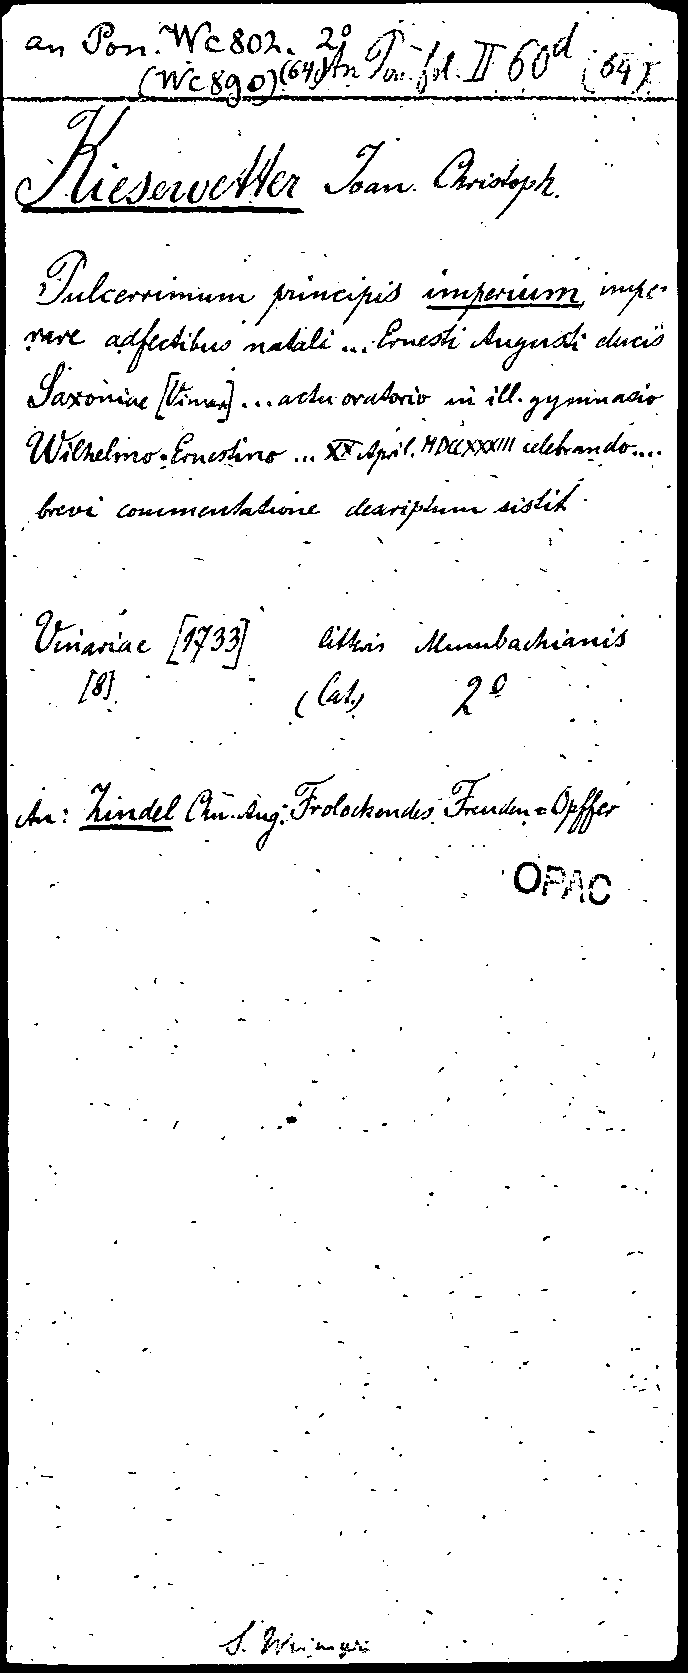 an Pon. Wc 802. 2°
(Wc 890) (64) An Pon. fol. II 60d (64)
Kiesewetter Joan. Christoph.
Pulcerrimum principis imperium, impe-
rare adfectibus natali ... Ernesti Augusti ducis
Saxoniae [Vimar] ... actu oratorio in ill. gymnasio
Wilhelmo-Ernestino ... XX April. MDCCXXXIII celebrando ....
brevi commentatione descriptum sistit
Vinariae [1733] litteris Mumbachianis
[8] (Lat.) 2°
An: Zindel Chn. Aug: Frolockendes Freuden=Opffer
OPAC
S. Weimar